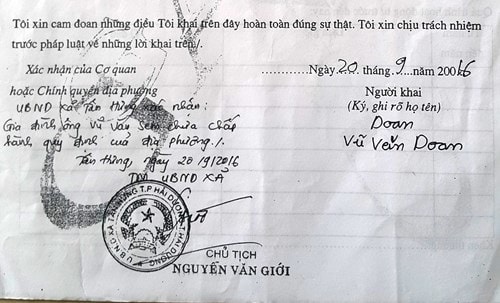 Tôi xin cam đoan những điều Tôi khai trên đây hoàn toàn đúng sự thật. Tôi xin chịu trách nhiệm
trước pháp luật về những lời khai trên./.
Xác nhận của Cơ quan
hoặc Chính quyền địa phương
UBND xã Tân Hưng xác nhận:
Gia đình ông Vũ Văn Sem chưa chấp
hành quy định của địa phương./.
Tân Hưng, ngày 20/9/2016
TM UBND XÃ
Ngày 20 tháng 9 năm 20016
Người khai
(Ký, ghi rõ họ tên)
Doan
Vũ Văn Doan
U.B.N.D XÃ TÂN HƯNG T.P HẢI DƯƠNG T.HẢI DƯƠNG
CHỦ TỊCH
NGUYỄN VĂN GIỚI